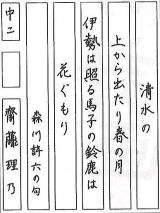 清水の
上から出たり春の月
伊勢は照る馬子の鈴鹿は
花ぐもり
森川許六の句
中二
齋藤理乃